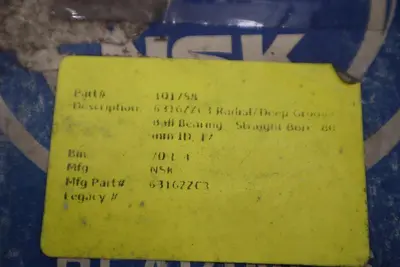 NSK
Part# 101758
Description: 6316ZZC3 Radial/Deep Groove
Ball Bearing, Straight Bore, 80
mm ID, 17
Bin 70-L-4
Mfg NSK
Mfg Part# 6316ZZC3
Legacy #